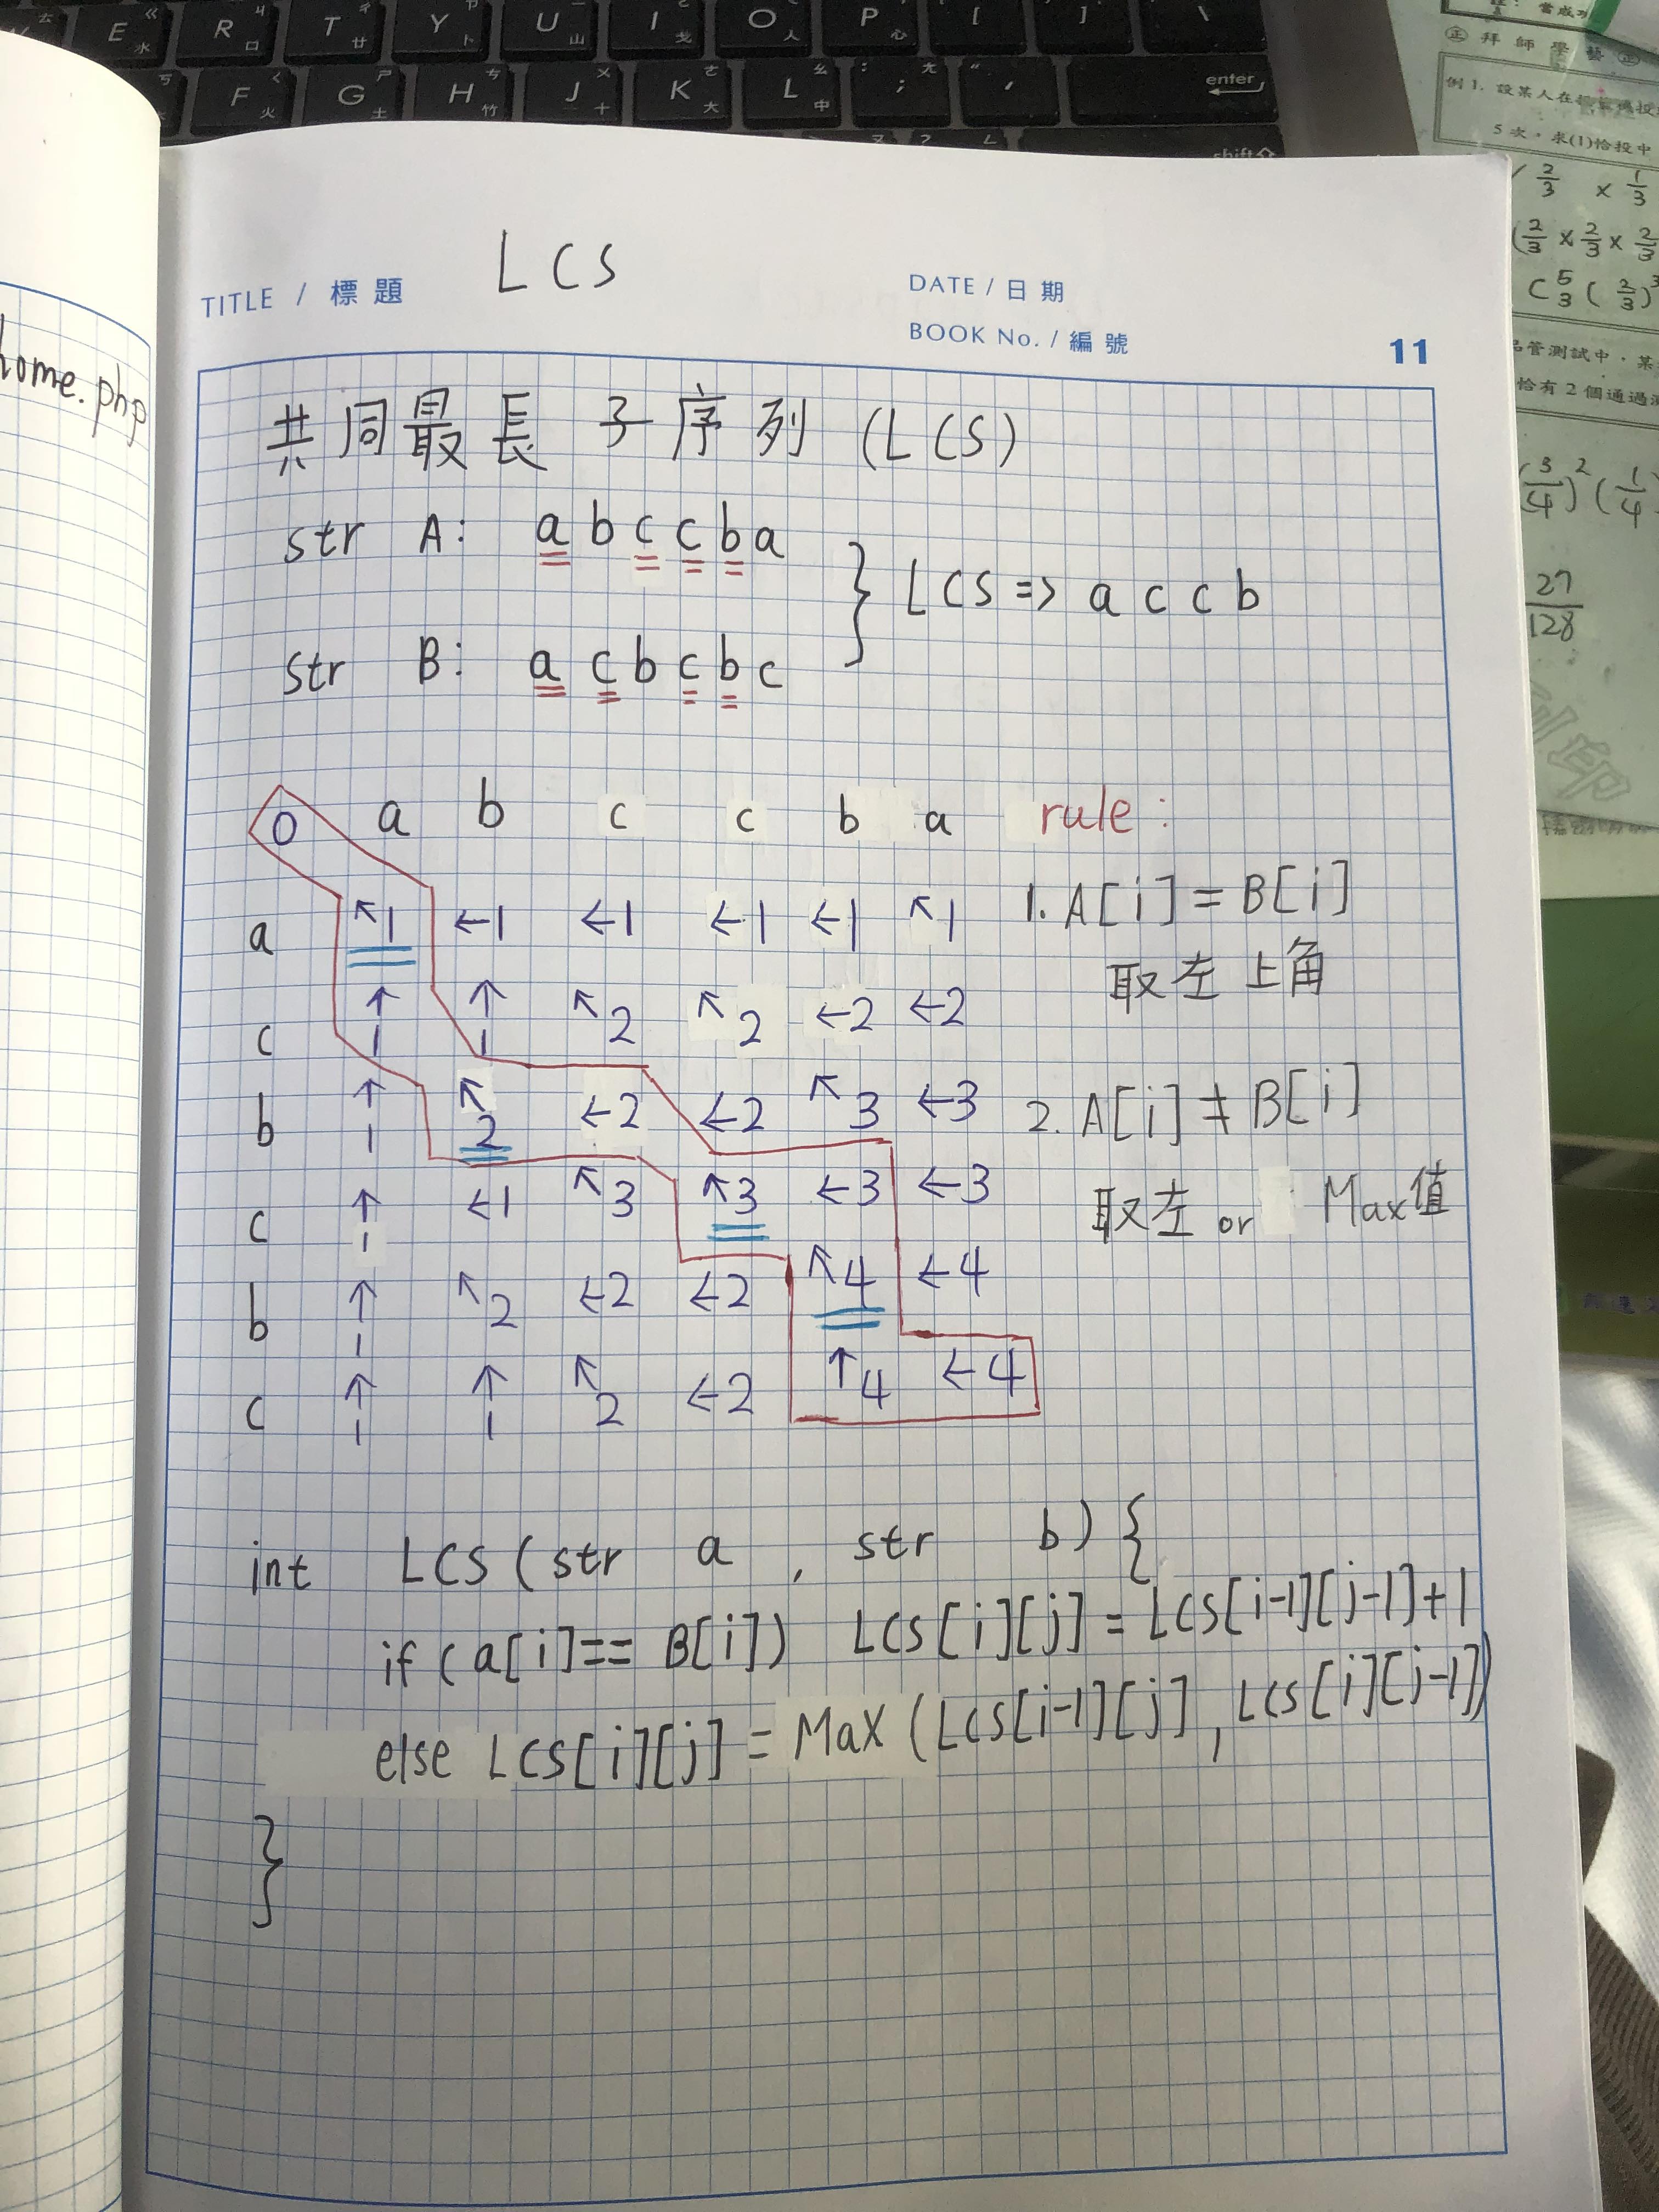 E 水 R 口 T 廿 Y 卜 U 山 I 戈 O 人 P 心 [ ] \
F 火 G 土 H 竹 J 十 K 大 L 中 ; ' enter
shift
home.php
TITLE / 標題 LCS
DATE / 日期
BOOK No. / 編號
11
共同最長子序列 (LCS)
str A: a b c c b a
} LCS => a c c b
str B: a c b c b c
0 a b c c b a
a ↖1 ←1 ←1 ←1 ←1 ↖1
c ↑1 ↑1 ↖2 ↖2 ←2 ←2
b ↑1 ↖2 ←2 ←2 ↖3 ←3
c ↑1 ←1 ↖3 ↖3 ←3 ←3
b ↑1 ↖2 ←2 ←2 ↖4 ←4
c ↑1 ↑1 ↖2 ←2 ↑4 ←4
rule:
1. A[i] = B[i]
取左上角
2. A[i] ≠ B[i]
取左 or Max值
int LCS ( str a , str b ) {
if ( a[i] == B[i] ) LCS[i][j] = LCS[i-1][j-1]+1
else LCS[i][j] = Max (LCS[i-1][j] , LCS[i][j-1])
}
拜師學藝
例1. 設某人在
5 次,求(1)恰投中
2/3 × 1/3
(2/3 × 2/3 × 2/3
C 5 3 ( 2/3 ) 3
品管測試中,某
恰有 2 個通過
(3/4)2 (1/4
27/128